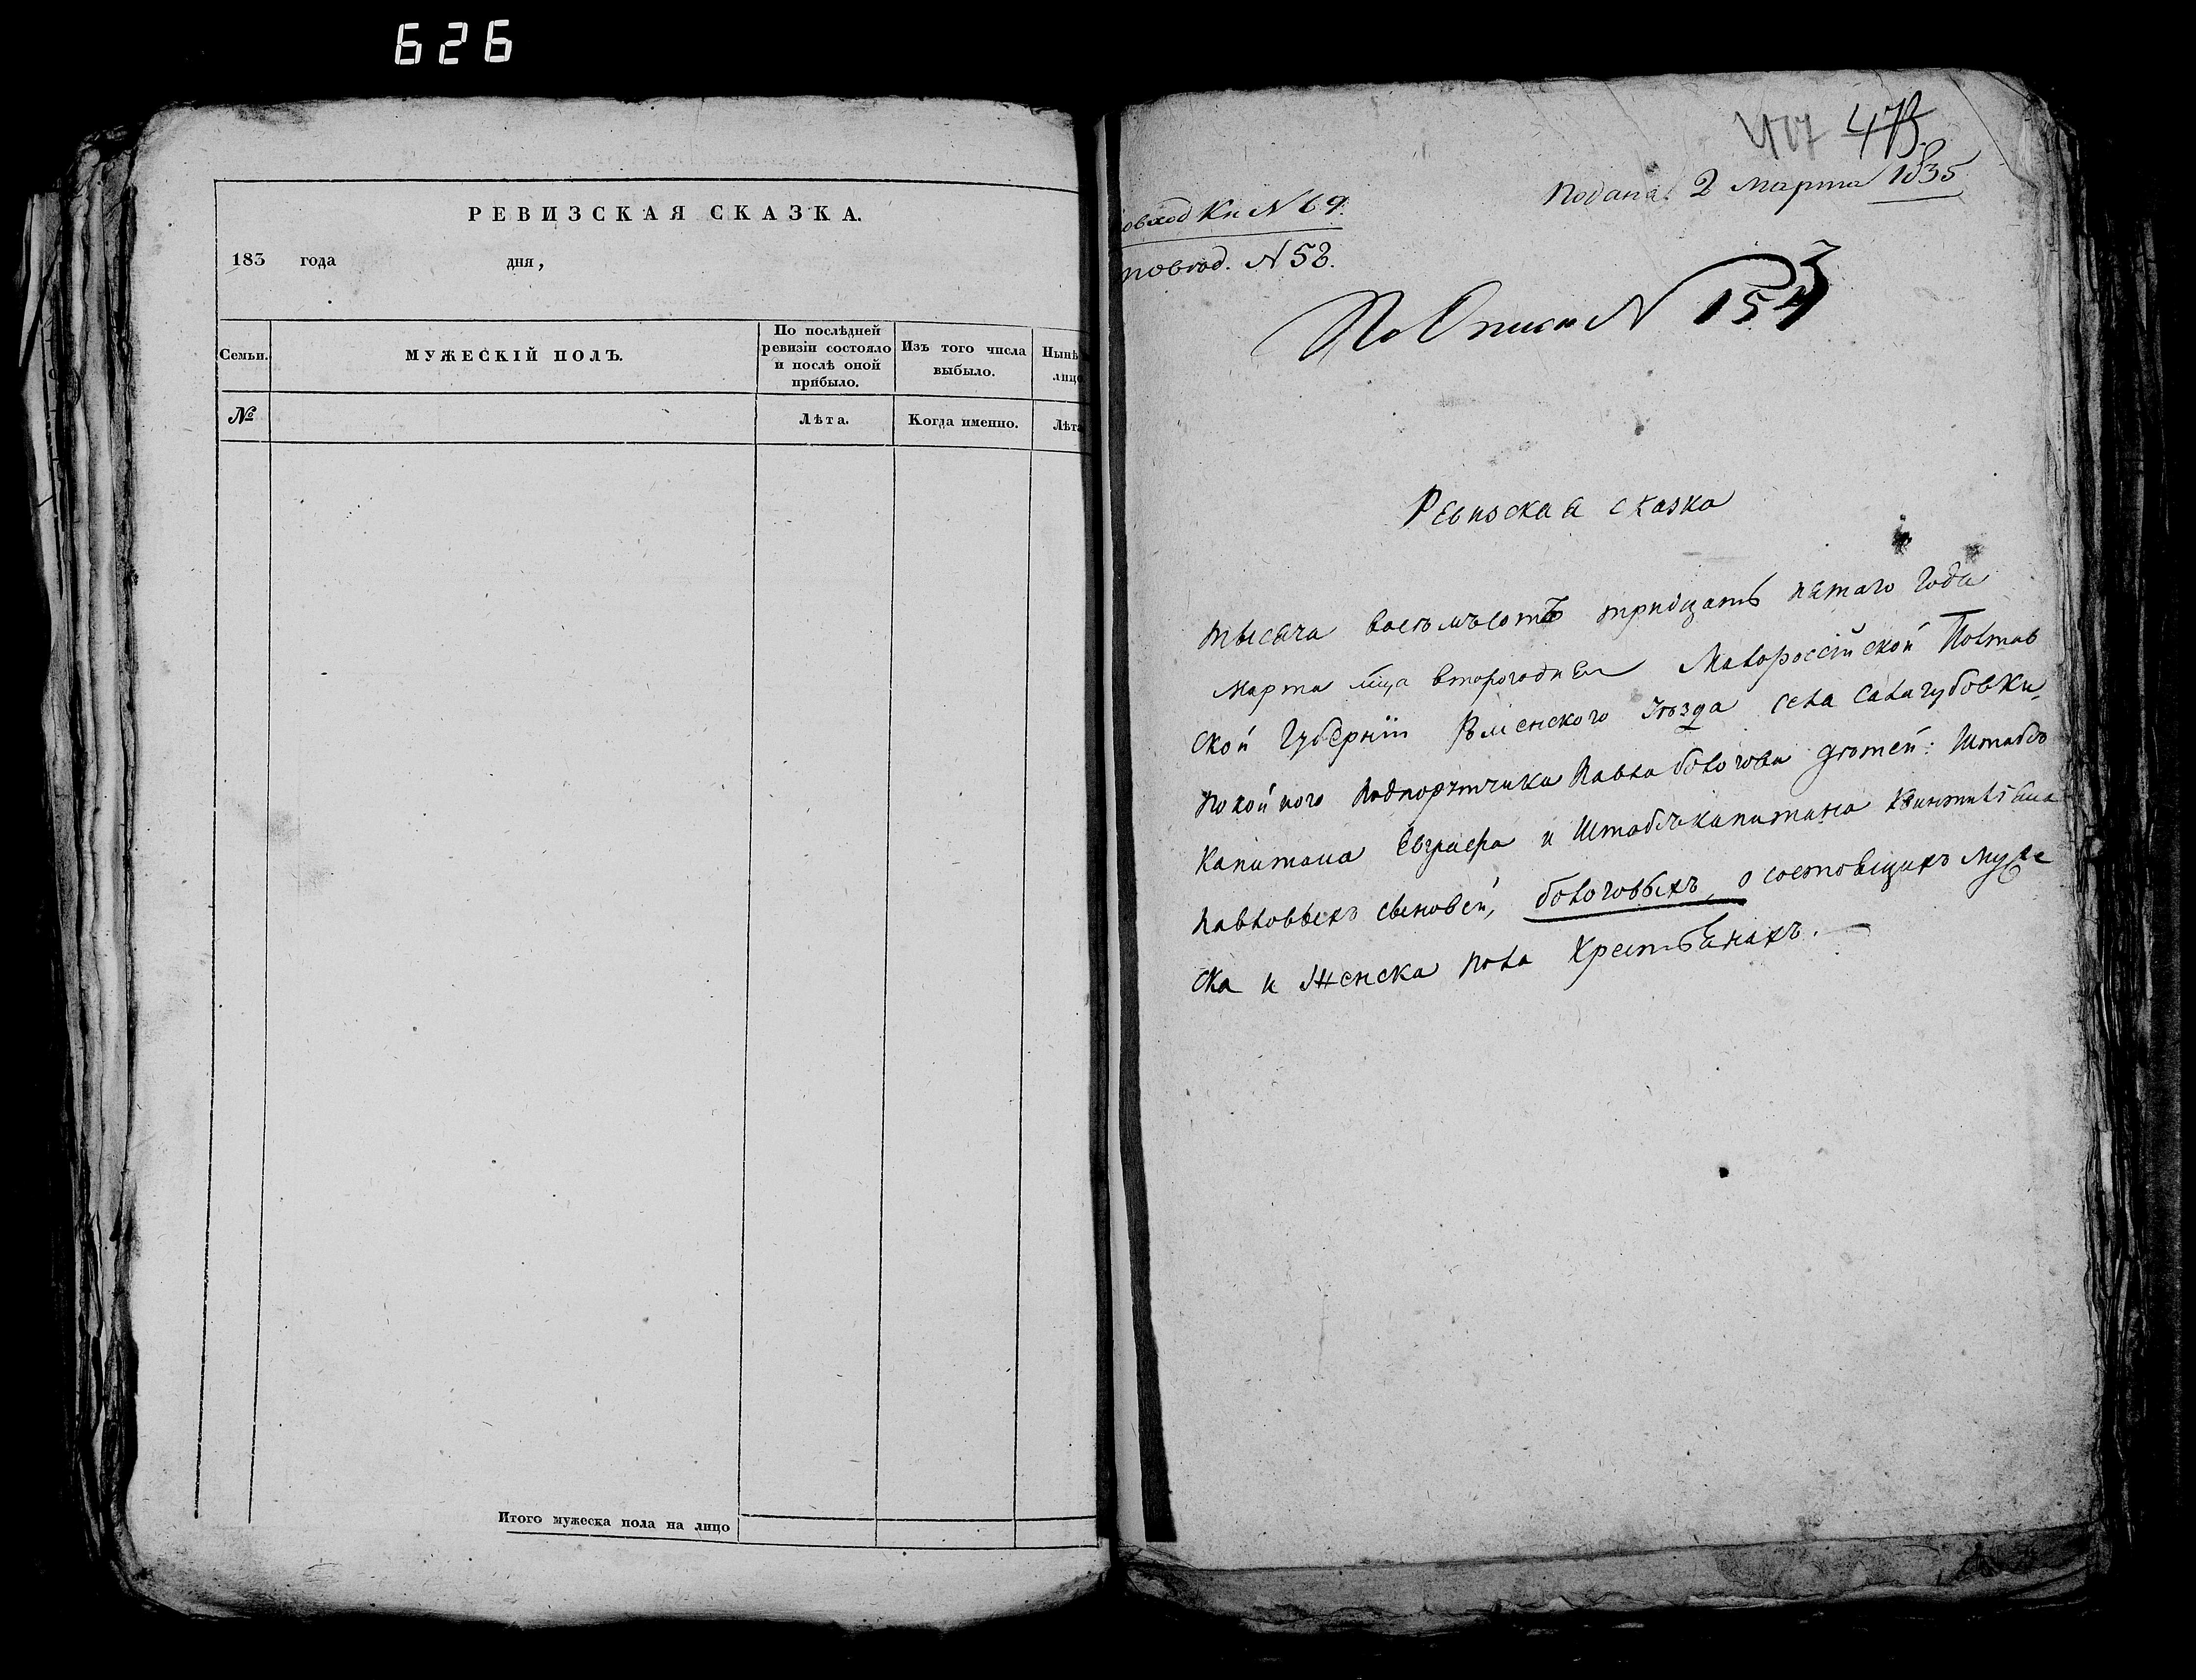 626
РЕВИЗСКАЯ СКАЗКА.
183 года дня,
Семьи.
МУЖЕСКІЙ ПОЛЪ.
По послѣдней ревизіи состояло и послѣ оной прибыло.
Изъ того числа выбыло.
№
Лѣта.
Когда именно.
Итого мужеска пола на лицо
473
Подана 2 марта 1835
Кн N 69.
N 58.
По Описи N 153
Ревизская сказка
тысяча восемьсотъ тридцать пятаго года
марта мца второгодня Малороссійской Полтав
ской Губерніи Роменского уѣзда села Салогубовки,
покойного подпорутчика Павла Бологова дѣтей: Штабсъ
капитана Евграфа и Штабськапитана Квинтиліана
Павловыхъ сыновей, Бологовыхъ, о состоящихъ муже
ска и женска пола крестьянахъ.